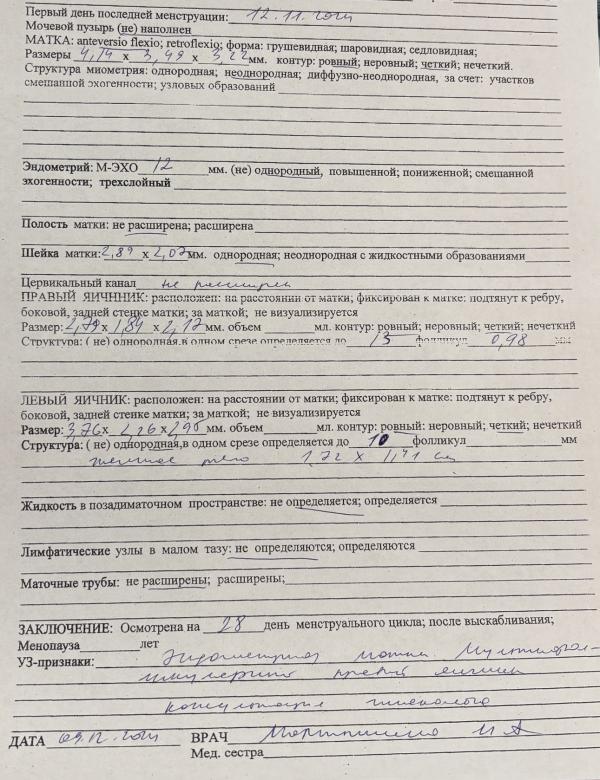 Первый день последней менструации: 12.11.2024
Мочевой пузырь (не) наполнен
МАТКА: anteversio flexio; retroflexio; форма: грушевидная; шаровидная; седловидная;
Размеры 4,74 х 3,49 х 3,22 мм. контур: ровный; неровный; четкий; нечеткий.
Структура миометрия: однородная; неоднородная; диффузно-неоднородная, за счет: участков
смешанной эхогенности; узловых образований
Эндометрий: М-ЭХО 12 мм. (не) однородный, повышенной; пониженной; смешанной
эхогенности; трехслойный
Полость матки: не расширена; расширена
Шейка матки: 2,89 х 2,07 мм. однородная; неоднородная с жидкостными образованиями
Цервикальный канал не расширен
ПРАВЫЙ ЯИЧННИК: расположен: на расстоянии от матки; фиксирован к матке: подтянут к ребру,
боковой, задней стенке матки; за маткой; не визуализируется
Размер: 2,79 х 1,84 х 2,17 мм. объем мл. контур: ровный; неровный; четкий; нечеткий
Структура: ( не) однородная,в одном срезе определяется до 15 фолликул 0,98 мм
ЛЕВЫЙ ЯИЧНИК: расположен: на расстоянии от матки; фиксирован к матке: подтянут к ребру,
боковой, задней стенке матки; за маткой; не визуализируется
Размер: 3,76 х 2,26 х 2,90 мм. объем мл. контур: ровный: неровный; четкий; нечеткий
Структура: ( не) однородная,в одном срезе определяется до 10 фолликул мм
желтое тело 1,72 х 1,41 см
Жидкость в позадиматочном пространстве: не определяется; определяется
Лимфатические узлы в малом тазу: не определяются; определяются
Маточные трубы: не расширены; расширены;
ЗАКЛЮЧЕНИЕ: Осмотрена на 28 день менструального цикла; после выскабливания;
Менопауза лет
УЗ-признаки: матки. Мультифол-
ликулярный правый яичник
консультация гинеколога
ДАТА 09.12.2024 ВРАЧ
Мед. сестра